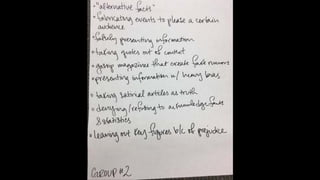 • "alternative facts"
• fabricating events to please a certain
audience
• falsely presenting information
• taking quotes out of context
• gossip magazines that create fake rumors
• presenting information w/ heavy bias
• taking satirical articles as truth
• denying/refusing to acknowledge facts
& statistics
• leaving out key figures b/c of prejudice
GROUP #2